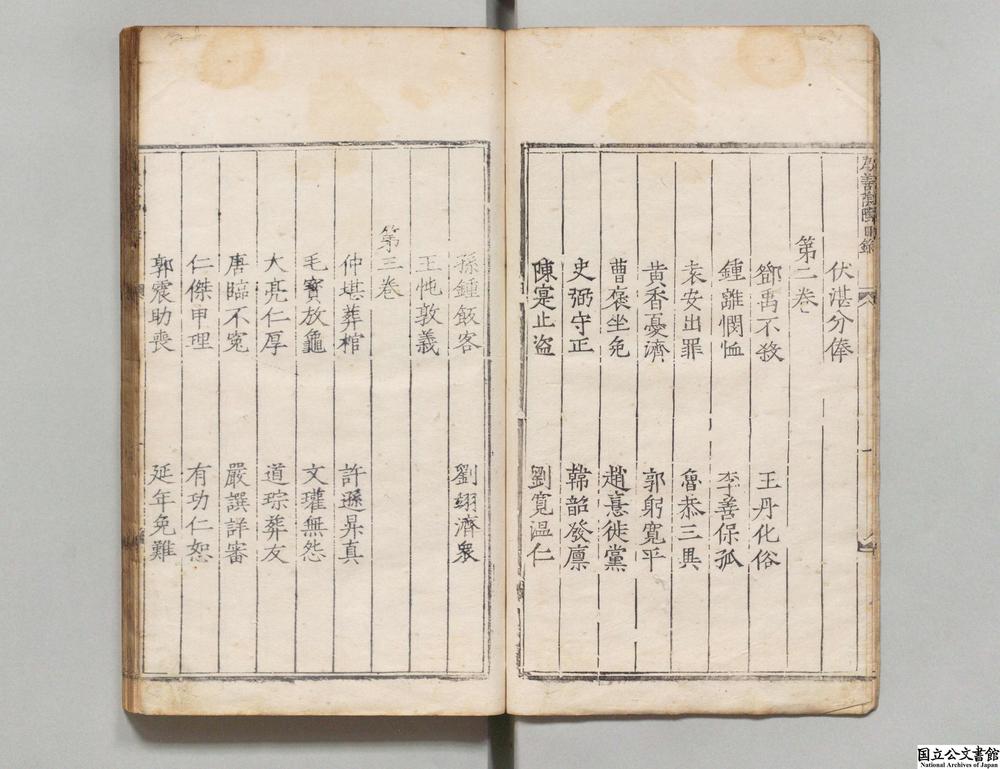 為善陰隲目錄
伏湛分俸
第二卷
鄧禹不殺 王丹化俗
鍾離憫恤 李善保孤
袁安出罪 魯恭三異
黃香憂濟 郭躬寬平
曹褒坐免 趙憙徙黨
史弼守正 韓韶發廩
陳寔止盜 劉寬温仁
孫鍾飯客 劉翊濟衆
王忳敦義
第三卷
仲堪葬棺 許遜昇真
毛寶放龜 文瓘無怨
大亮仁厚 道琮葬友
唐臨不寃 嚴譔詳審
仁傑申理 有功仁恕
郭震助喪 延年免難
国立公文書館
National Archives of Japan